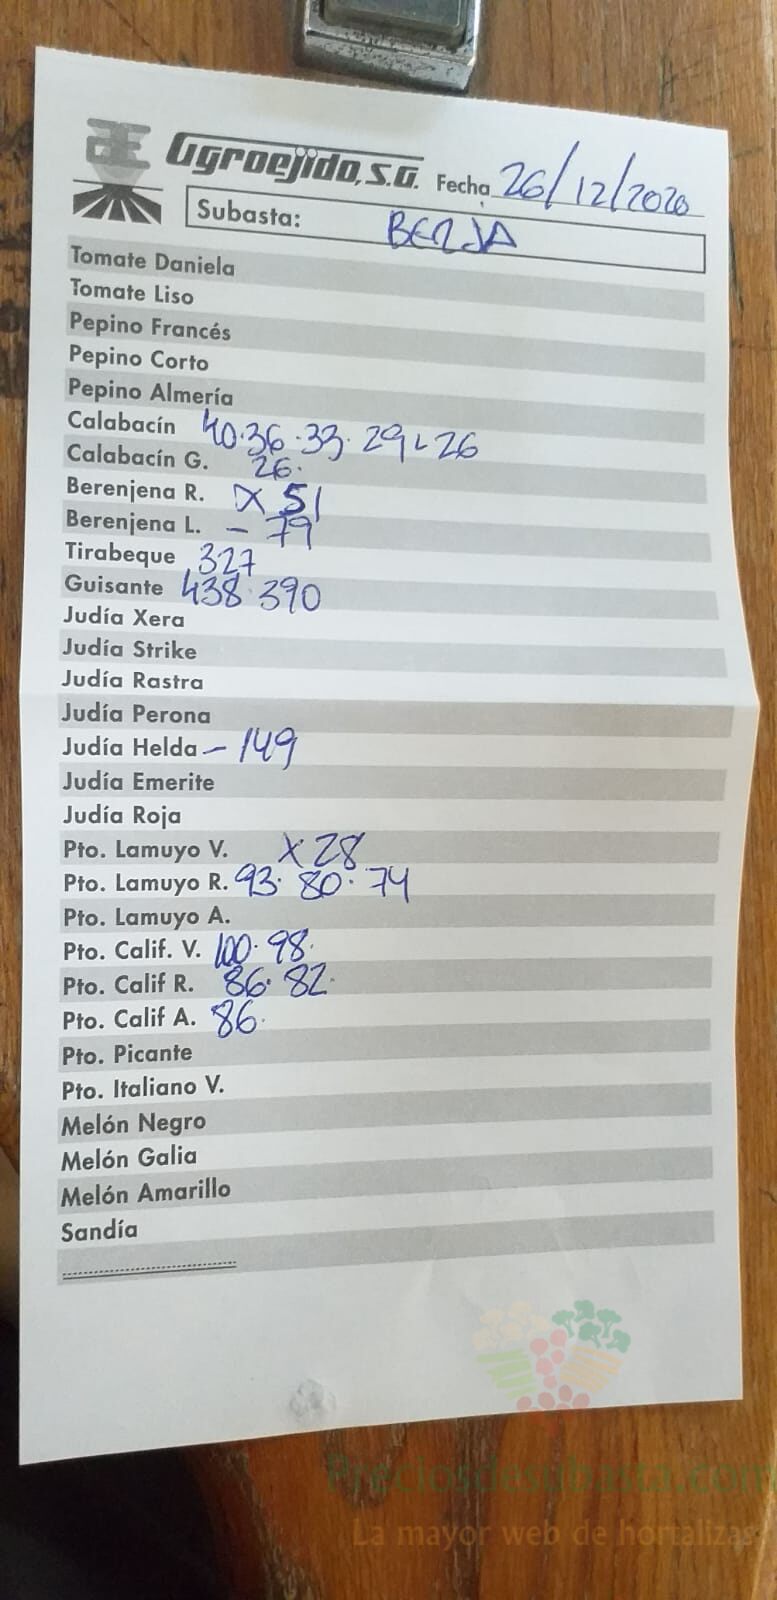 Agroejido, S.A. Fecha 26/12/2020
Subasta: BERJA
Tomate Daniela
Tomate Liso
Pepino Francés
Pepino Corto
Pepino Almería
Calabacín 40·36·33·29 26
Calabacín G. 26·
Berenjena R. X 51
Berenjena L. - 79
Tirabeque 327
Guisante 438·390
Judía Xera
Judía Strike
Judía Rastra
Judía Perona
Judía Helda - 149
Judía Emerite
Judía Roja
Pto. Lamuyo V. X 28
Pto. Lamuyo R. 93· 80· 74
Pto. Lamuyo A.
Pto. Calif. V. 100·98·
Pto. Calif R. 86· 82·
Pto. Calif A. 86·
Pto. Picante
Pto. Italiano V.
Melón Negro
Melón Galia
Melón Amarillo
Sandía
Preciosdesubasta.com
La mayor web de hortalizas